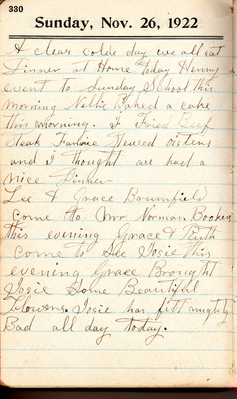 330
Sunday, Nov. 26, 1922
A clear colde day we all eat
Dinner at Home today Henry
event to Sunday School this
morning Nellie Baked a cake
this morning. I Fried Beef
Steak Fannie Stewed oisters
and I thought we had a
nice Dinner
Lee & Grace Brumfield
come to Mr Norman Bookers
this evening Grace & Ruth
come to See Josie this
evening Grace Brought
Josie Some Beautiful
Flowers. Josie has felt mighty
Bad all day today.